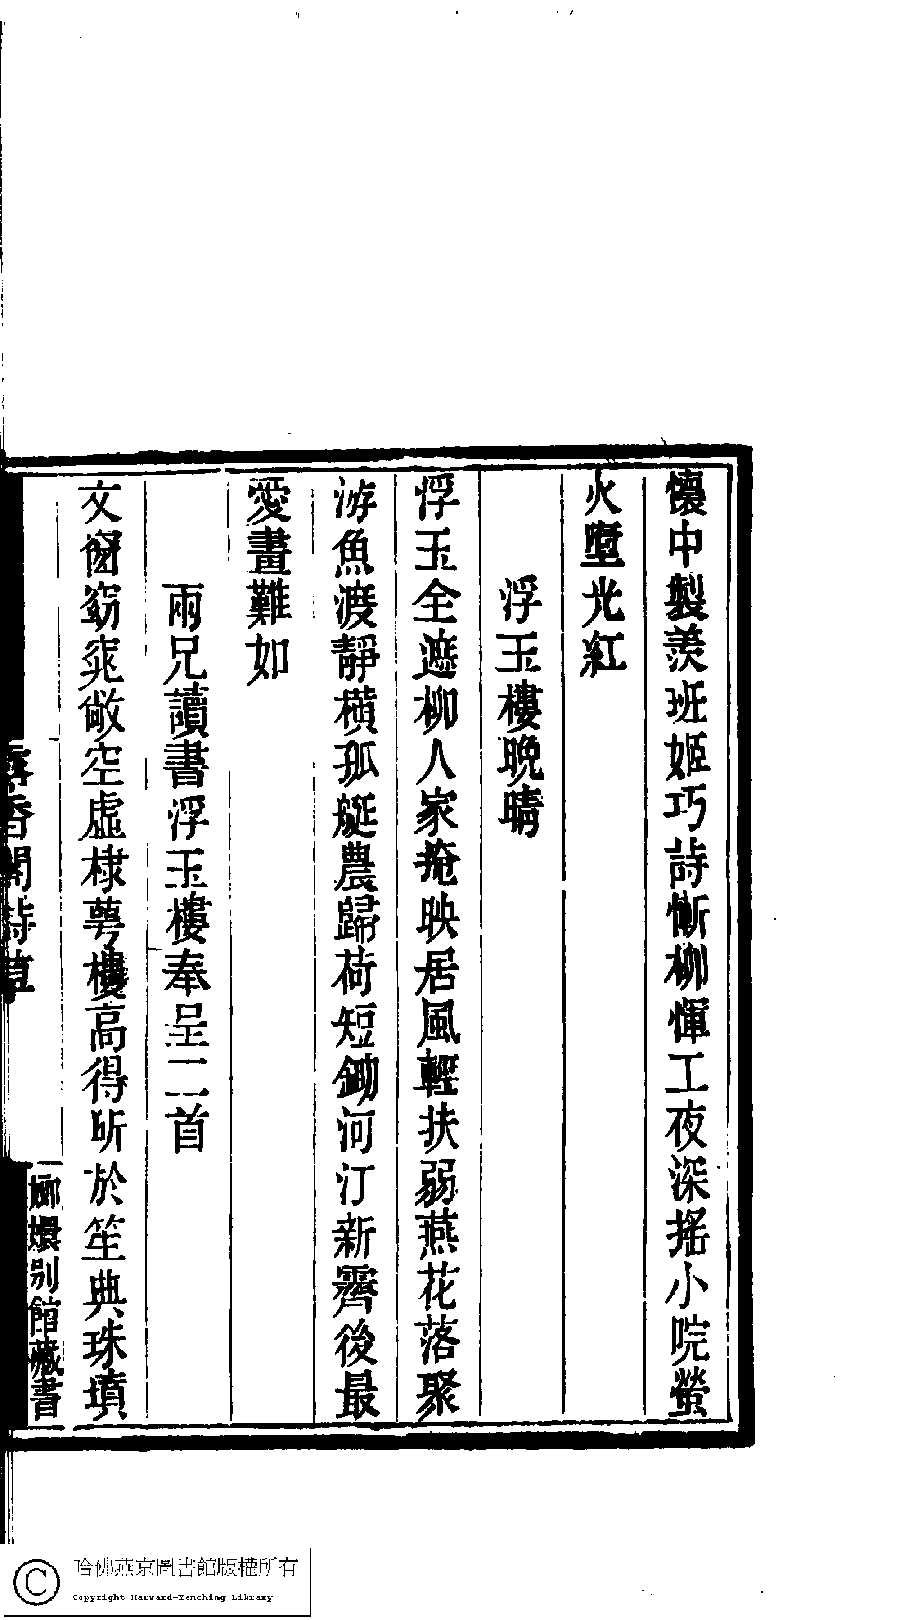 懷中製羨班姬巧詩慚柳惲工夜深搖小院螢
火墮光紅
浮玉樓晚晴
浮玉全遮柳人家掩映居風輕扶弱燕花落聚
游魚渡靜橫孤艇農歸荷短鋤河汀新霽後最
愛畫難如
兩兄讀書浮玉樓奉呈二首
文窗窈窕敞空虛棣萼樓高得所於笙典珠墳
香閣詩草
嫏嬛別館藏書
哈佛燕京圖書館版權所有
Copyright Harvard-Yenching Library